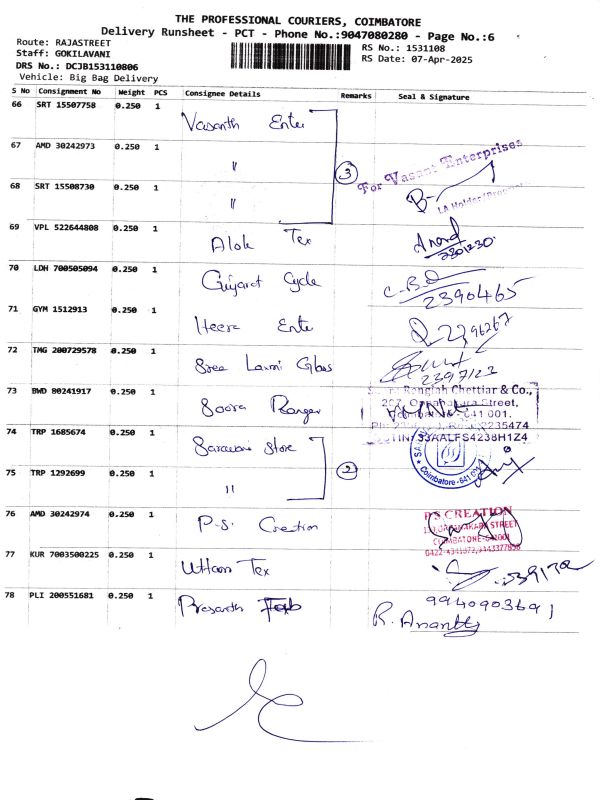 THE PROFESSIONAL COURIERS, COIMBATORE
Delivery Runsheet - PCT - Phone No.:9047080280 - Page No.:6
Route: RAJASTREET
Staff: GOKILAVANI
DRS No.: DCJB153110806
Vehicle: Big Bag Delivery
RS No.: 1531108
RS Date: 07-Apr-2025
S No Consignment No Weight PCS Consignee Details Remarks Seal & Signature
66 SRT 15507758 0.250 1 Vasanth Enter
67 AMD 30242973 0.250 1 "
3
For Vasant Enterprises
68 SRT 15508730 0.250 1 "
69 VPL 522644808 0.250 1 Alok Tex Anand
2301230
70 LDH 700505094 0.250 1 Gujarat Cycle C.B.D
2390465
71 GYM 1512913 0.250 1 Heera Ente
72 TMG 200729578 0.250 1 Sree Laxmi Glass
2397122
73 BWD 80241917 0.250 1 Soora Rangar
Rangiah Chettiar & Co.,
Street,
641 001.
2235474
33AALFS4238H1Z4
74 TRP 1685674 0.250 1 Saravana Store
2
Coimbatore - 641 001
75 TRP 1292699 0.250 1 "
76 AMD 30242974 0.250 1 P.S. Creation
P.S. CREATION
STREET
COIMBATORE-641001
77 KUR 7003500225 0.250 1 Uttam Tex
78 PLI 200551681 0.250 1 Prasanth Fab
9940903691
R. Ananth